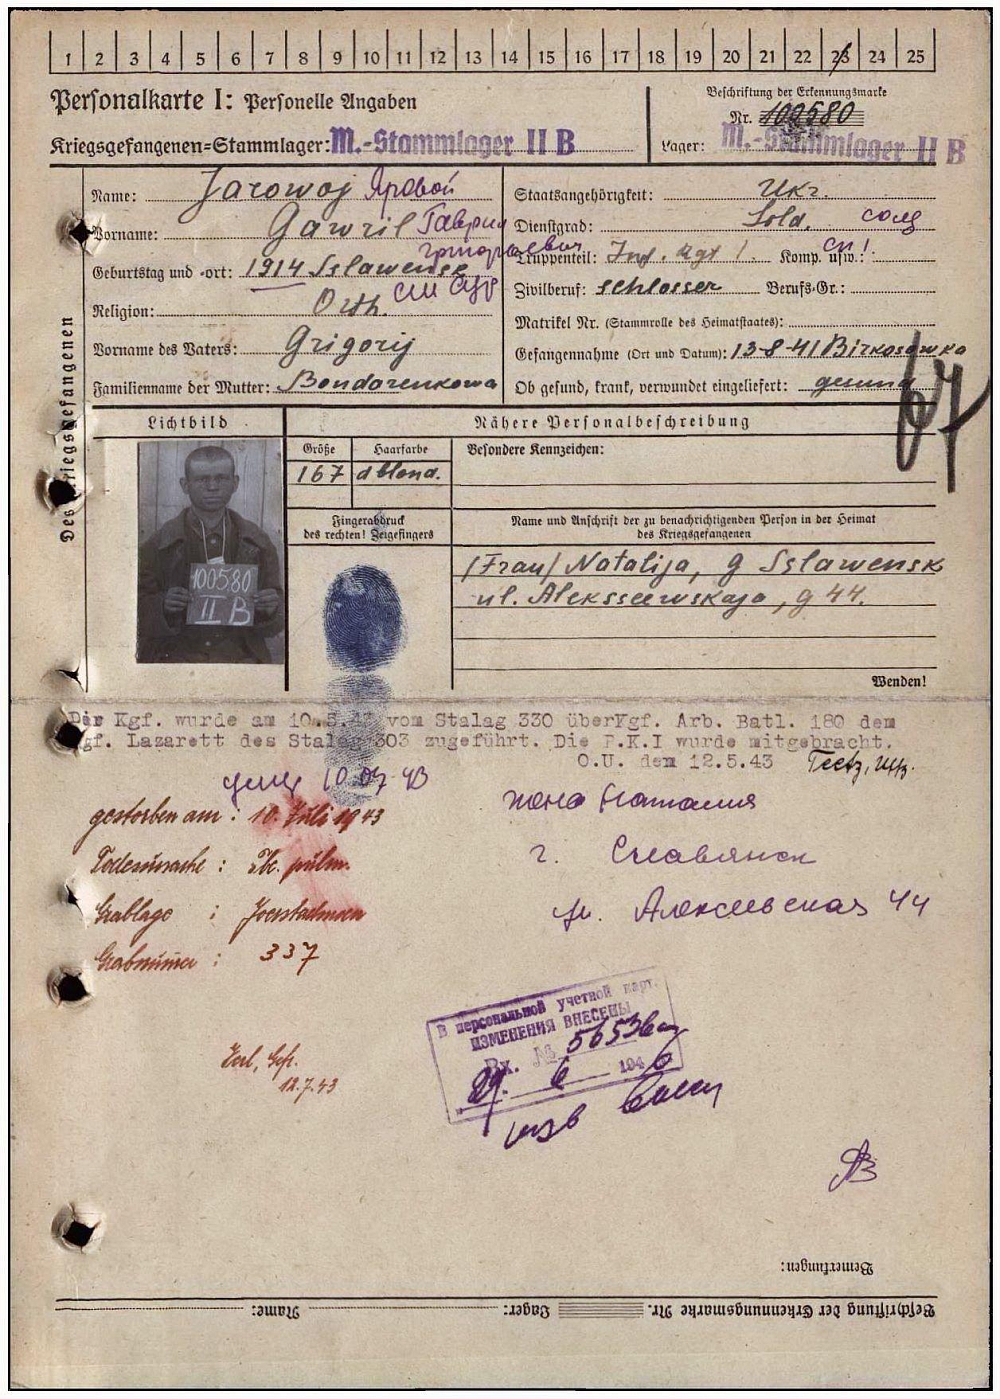 1 2 3 4 5 6 7 8 9 10 11 12 13 14 15 16 17 18 19 20 21 22 23 24 25
Personalkarte I: Personelle Angaben
Beschriftung der Erkennungsmarke
Nr. 100580
Kriegsgefangenen-Stammlager: M.-Stammlager II B
Lager: M.-Stammlager II B
Des Kriegsgefangenen
Name: Jarowoj Яровой
Vorname: Gawril Гаврил
Григорьевич
Geburtstag und -ort: 1914 Sslawensk
Religion: Orth.
Vorname des Vaters: Grigorij
Familienname der Mutter: Bondarenkowa
Staatsangehörigkeit: Ukr.
Dienstgrad: Sold. солд
Truppenteil: Inf. Rgt 1. Komp. usw.:
Zivilberuf: Schlosser Berufs-Gr.:
Matrikel Nr. (Stammrolle des Heimatstaates):
Gefangennahme (Ort und Datum): 13-8-41 Birkosowka
Ob gesund, krank, verwundet eingeliefert: gesund
67
Lichtbild
Nähere Personalbeschreibung
Größe
Haarfarbe
Besondere Kennzeichen:
167
dblond.
100580
II B
Fingerabdruck
des rechten! Zeigefingers
Name und Anschrift der zu benachrichtigenden Person in der Heimat
des Kriegsgefangenen
/Frau/ Natalija, g Sslawensk
ul. Aleksseewskaja, g 44.
Wenden!
Der Kgf. wurde am 10.5.43 vom Stalag 330 überKgf. Arb. Batl. 180 dem
Kgf. Lazarett des Stalag 303 zugeführt. Die P.K.I wurde mitgebracht.
O.U. dem 12.5.43
умер 10 07 43
gestorben am: 10. Juli 1943
Todesursache: Tbc. pulm.
Grablage: Joerstadmoen
Grabnummer: 337
жена Наталия
г. Славянск
ул. Алексеевская 44
В персональной учетной карт.
ИЗМЕНЕНИЯ ВНЕСЕНЫ
Вх. №
29. 6 1946
12.7.43
Bemerkungen:
Beschriftung der Erkennungsmarke Nr. Lager: Name: